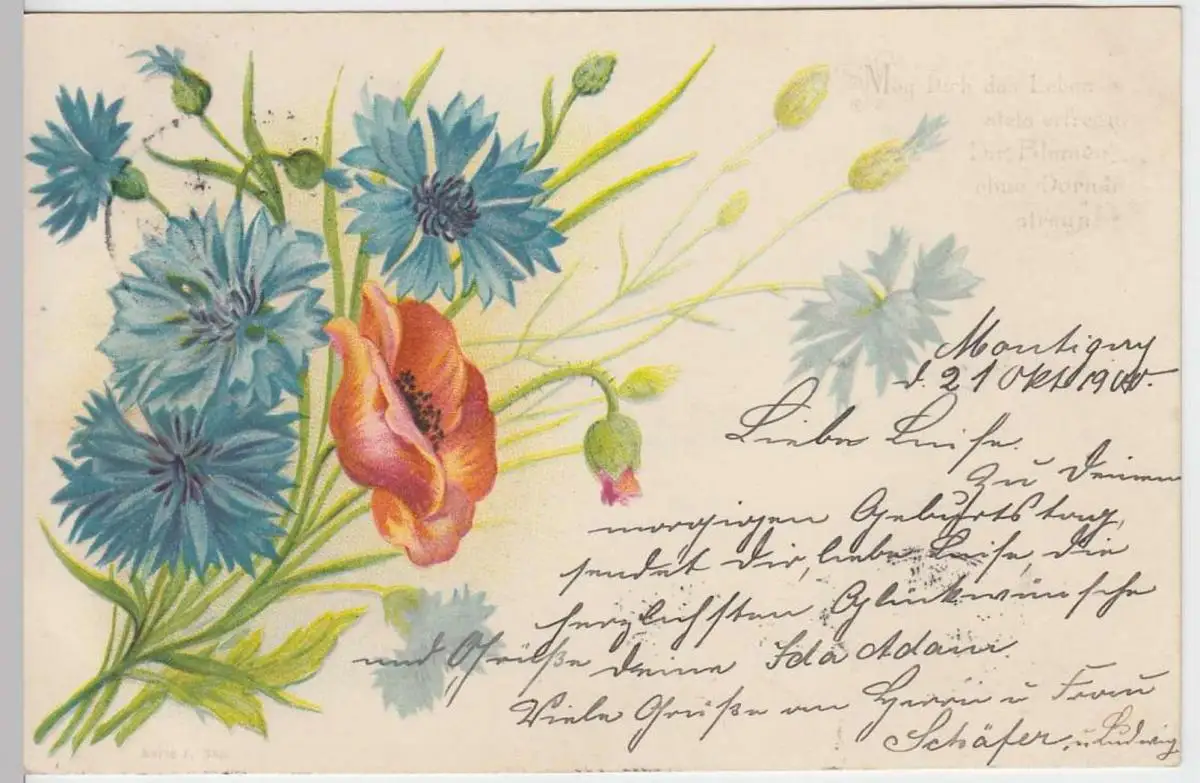 Mög Dich das Leben
stets erfreun
Dir Blumen
ohne Dornen
streun
Montigny
d. 21 Okt 1900.
Liebe Luise.
Zu Deinem
morgigen Geburtstag,
sendet Dir, liebe Luise, die
herzlichsten Glückwünsche
und Grüße Deine Ida Adam.
Viele Grüße an Herrn u Frau
Schäfer, u Ludwig
Serie